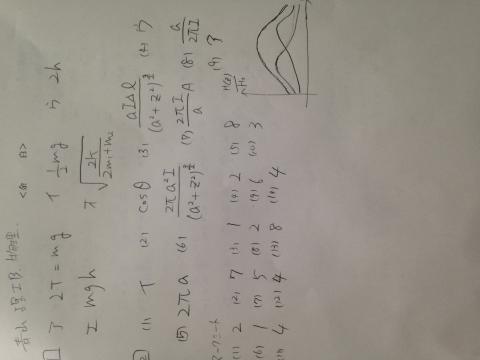 青山 理工B. 物理. <面 白>
1 ア 2T = mg イ 1/2 mg ウ 2h
エ mgh オ √(2h/(2m₁+m₂))
2 (1) イ (2) cosθ (3) aIΔl/(a²+z²)^(3/2) (4) ウ
(5) 2πa (6) 2πa²I/(a²+z²)^(3/2) (7) 2πI/a A (8) a/2πI
(9) 3
マークシート
(1) 2 (2) 7 (3) 1 (4) 2 (5) 8
(6) 1 (7) 5 (8) 2 (9) 6 (10) 3
(11) 4 (12) 4 (13) 8 (14) 4